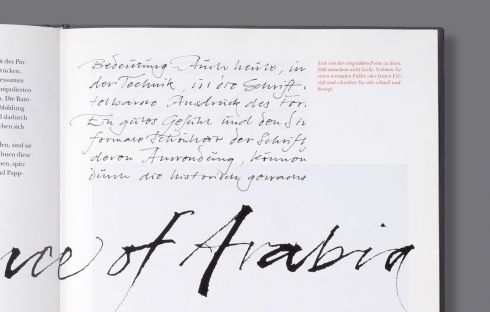 it des Pin-
rücken,
essanten
nipulierten
n. Die Bam-
bbildung
d dadurch
chen sich
den, sind sie
hnen diese
nen, spitz
d Papp-
Bedeutung Auch heute, in
der Technik, ist die Schrift
telbarste Ausdruck des For.
Ein gutes Gefühl und den Sin
formale Schönheit der Schrift
deren Anwendung, können
durch die historisch gewachs
Sich von der eingeübten Form zu lösen,
fällt manchem nicht leicht. Nehmen Sie
einen normalen Füller oder feinen Filz-
stift und schreiben Sie sehr schnell und
bewegt.
nce of Arabia